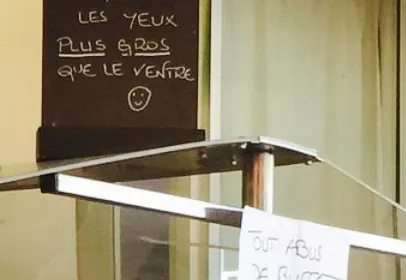 LES YEUX
PLUS GROS
QUE LE VENTRE
TOUT ABUS
DE BUFFET